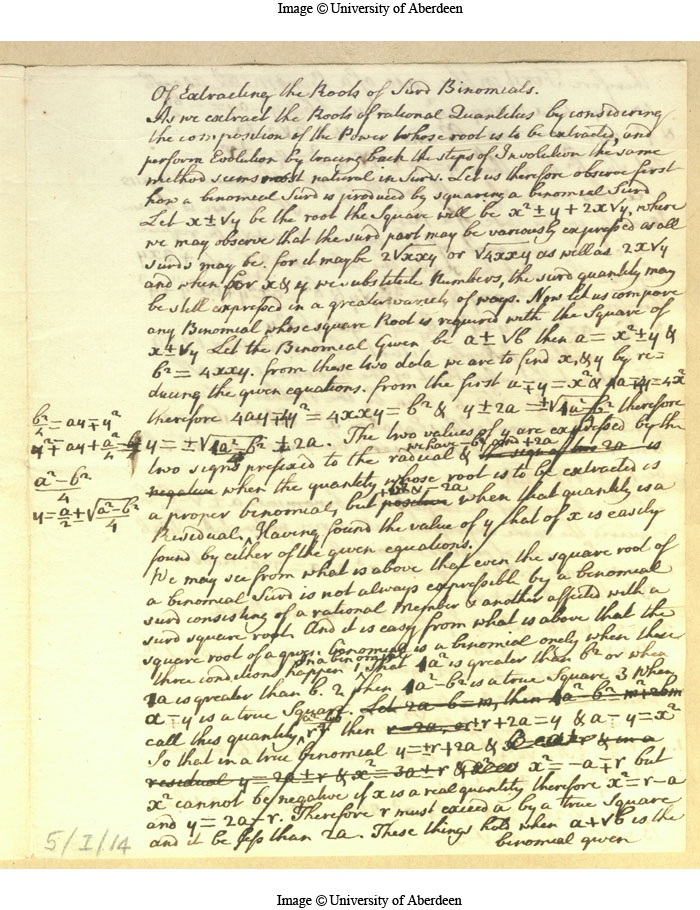 Image © University of Aberdeen
Of Extracting the Roots of Surd Binomials.
As we extract the Roots of rational Quantities by considering
the composition of the Power whose root is to be extracted, and
perform Evolution by tracing back the steps of Involution the same
method seems most natural in Surds. Let us therefore observe first
how a binomial Surd is produced by squaring a binomial Surd
Let x±√y be the root the Square will be x²±y+2x√y, where
we may observe that the surd part may be variously expressed as all
surds may be. for it may be 2√xxy or √4xxy as well as 2x√y
and when for x & y we substitute Numbers, the surd quantity may
be still expressed in a greater variety of ways. Now let us compare
any Binomial whose square Root is required with the Square of
x±√y Let the Binomial Given be a±√b then a=x²±y &
b²=4xxy. from these two data we are to find x, & y by re-
ducing the given equations. from the first a∓y=x² & 4a∓4y=4x²
therefore 4ay∓4y²=4xxy=b² & y±2a=±√4a²-b² therefore
b²/4=ay∓y²
y=±√4a²-b²±2a. The two values of y are expressed by the
two signs prefixed to the radical & we have -b² and +2a
a²-b²/4
negative when the quantity whose root is to be extracted is
y=a/2±√a²-b²/4
a proper binomial, but when that quantity is a
Residual. Having found the value of y that of x is easily
found by either of the given equations.
We may see from what is above that even the square root of
a binomial Surd is not always expressible by a binomial
surd consisting of a rational Member & another affected with a
surd square root. And it is easy from what is above that the
square root of a is a binomial onely when these
three conditions happen 1 That 4a² is greater than b² or when
2a is greater than b. 2 When 4a²-b² is a true Square 3 When
a∓y is a true Square. Let 2a-b=m, then 4a²-b²=m²+2bm
call this quantity r² then r-2a, or ±r+2a=y & a∓y=x²
So that in a true binomial y=±r+2a &
residual y=2a±r & x²=3a±r & x²=-a∓r but
x² cannot be negative if x is a real quantity therefore x²=r-a
and y=2a-r. Therefore r must exceed a by a true Square
and it be less than 2a. These things hold when a+√b is the
binomial given
5/I/14
Image © University of Aberdeen